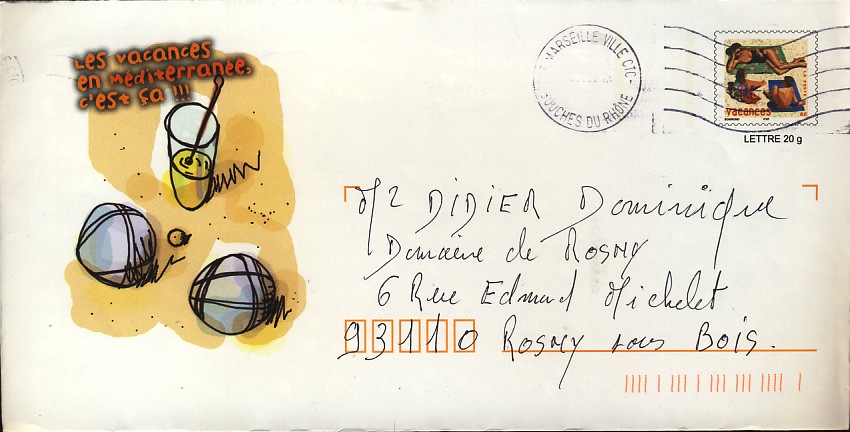 Les vacances
en Méditerranée,
c'est ça !!!
MARSEILLE VILLE CTC
BOUCHES DU RHÔNE
LA POSTE
vacances
LETTRE 20 g
Mr DIDIER Dominique
Domaine de ROSNY
6 Rue Edmond Michelet
93110 ROSNY sous Bois.